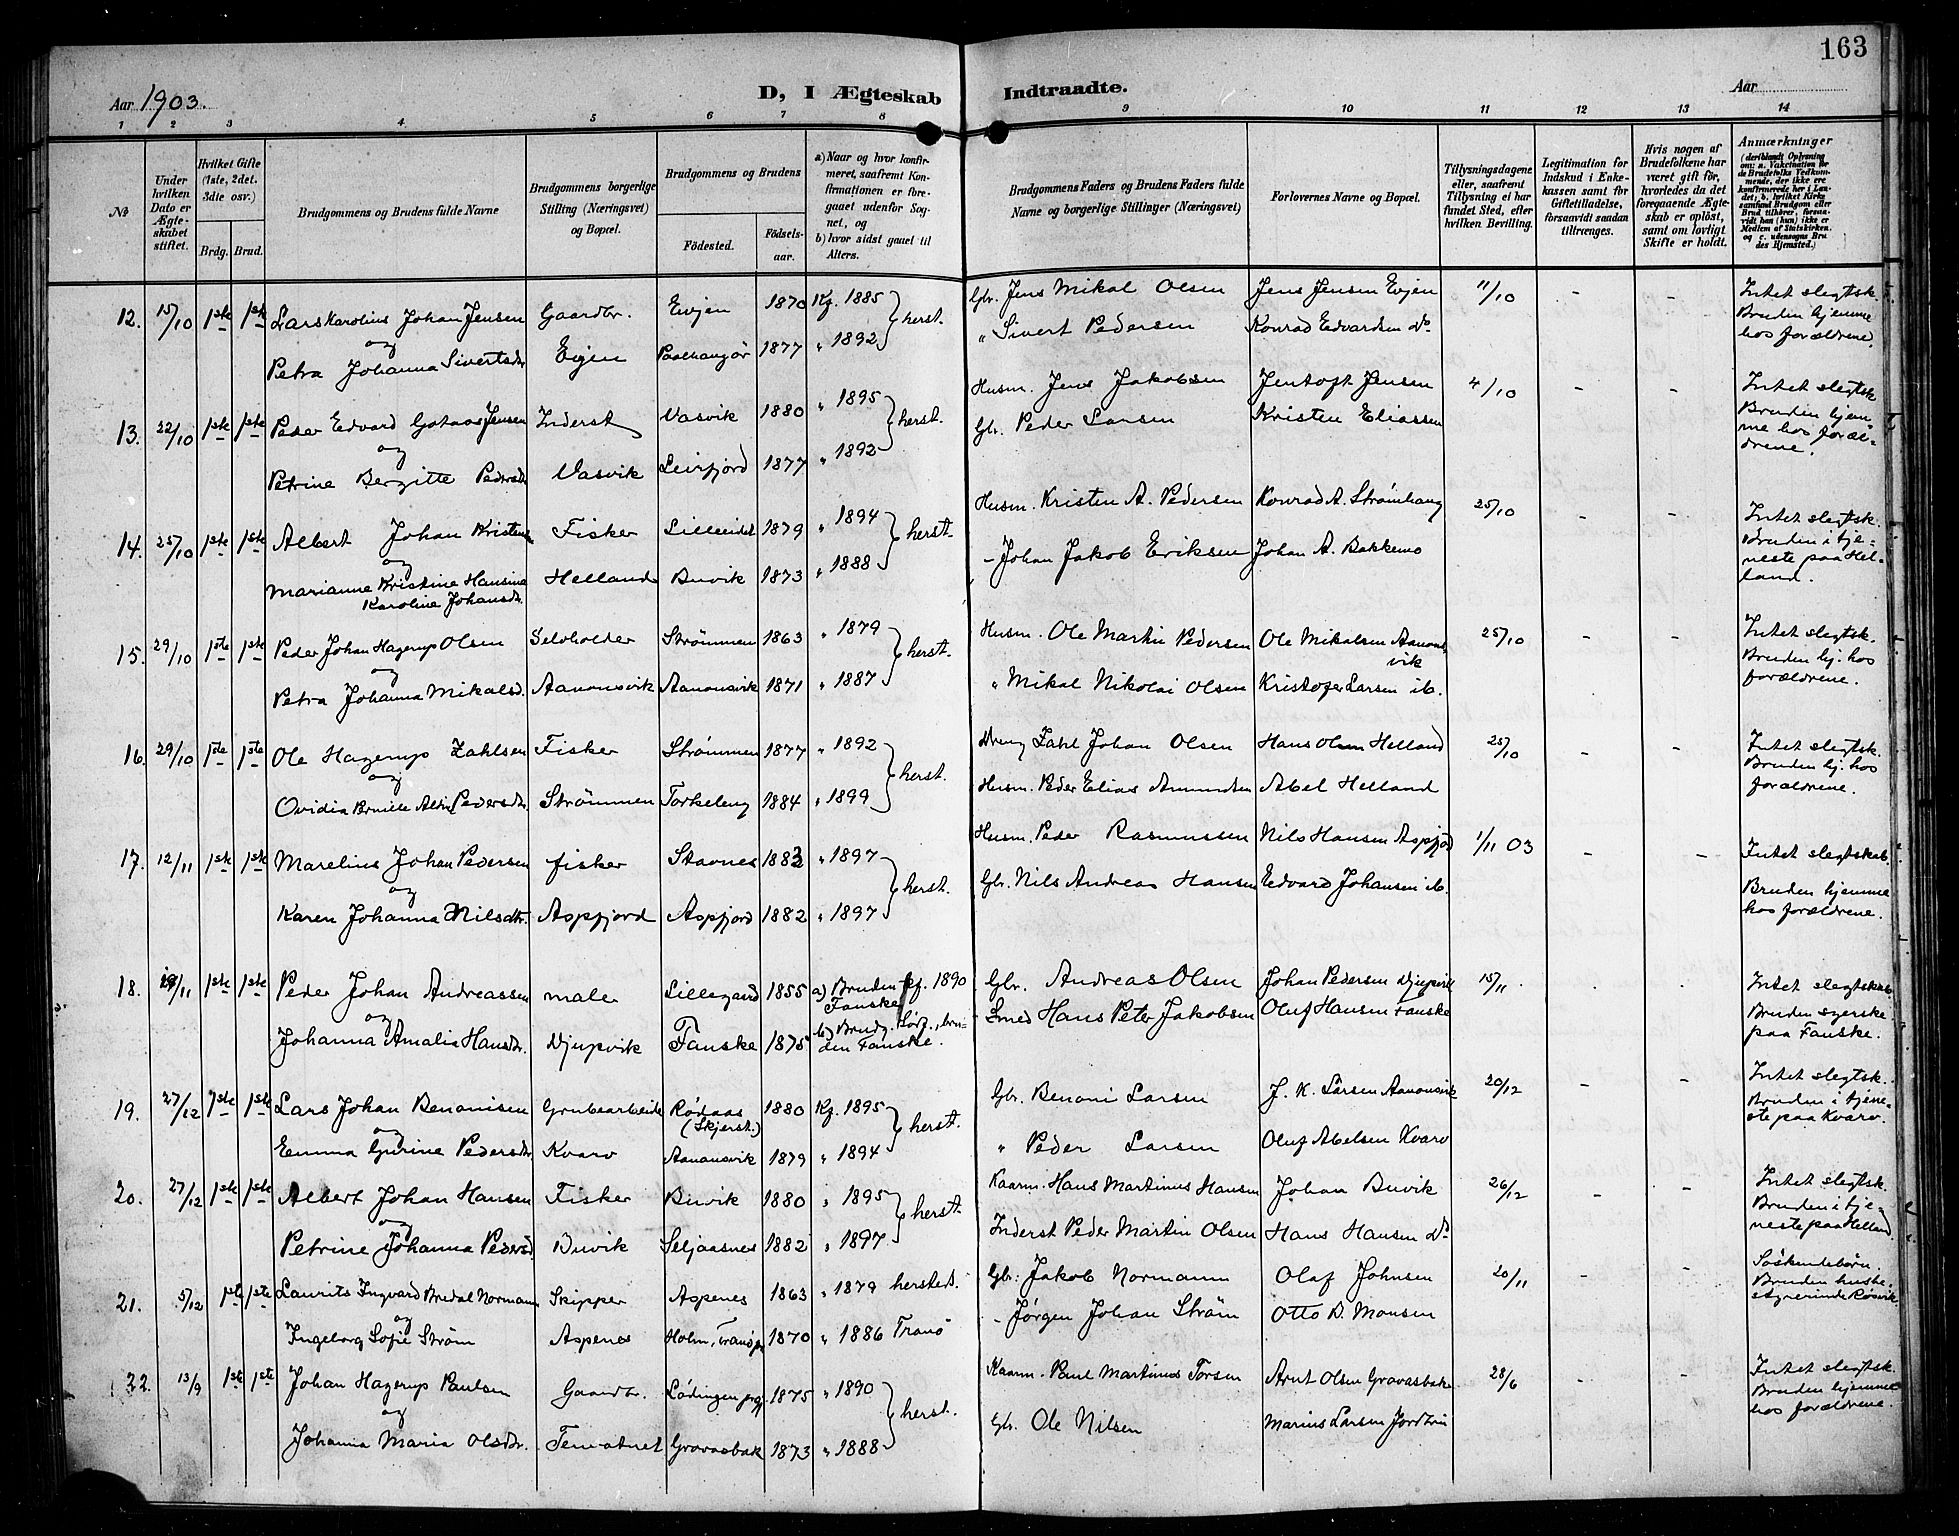 163
Aar 1903.
D, I Ægteskab Indtraadte.
Aar
1 2 3 4 5 6 7 8 9 10 11 12 13 14
No
Under hvilken Dato er Ægteskabet stiftet.
Hvilket Gifte (1ste, 2det. 3die osv.)
Brdg. Brud.
Brudgommens og Brudens fulde Navne
Brudgommens borgerlige Stilling (Næringsvei) og Bopæl.
Brudgommens og Brudens
Fødested. Fødselsaar.
a) Naar og hvor konfirmeret, saafremt Konfirmationen er foregaaet udenfor Sognet, og
b) hvor sidst gaaet til Alters.
Brudgommens Faders og Brudens Faders fulde Navne og borgerlige Stillinger (Næringsvei)
Forlovernes Navne og Bopæl.
Tillysningsdagene eller, saafremt Tillysning ei har fundet Sted, efter hvilken Bevilling.
Legitimation for Indskud i Enkekassen samt for Giftetilladelse, forsaavidt saadan tiltrænges.
Hvis nogen af Brudefolkene har været gift før, hvorledes da det foregaaende Ægteskab er opløst, samt om lovligt Skifte er holdt.
Anmærkninger
(deriblandt Oplysning om: a. Vakcination for de Brudefolks Vedkommende, der ikke ere konfirmerede her i Landet; b. hvilket Kirkesamfund Brudgom eller Brud tilhører, forsaavidt han (hun) ikke er Medlem af Statskirken. og c. udensogns Brudes Hjemsted.)
12. 15/10 1ste 1ste Lars Karolius Johan Jensen Gaardbr. Evjen 1870 Kg. 1885 herst. Gbr. Jens Mikal Olsen Jens Jensen Evjen 11/10 - - Intet slegtsk.
og Bruden hjemme
Petra Johanna Sivertsdr Evjen 1877 " 1892 " Sivert Pedersen Konrad Edvardsen do hos forældrene.
13. 22/10 1ste 1ste Peder Edvard Gotaas Jensen Inderst Vasvik 1880 " 1895 herst. Husm. Jens Jakobsen Jentoft Jensen 4/10 - - Intet slegtsk
og Bruden hjemme hos forældrene.
Petrine Bergitte Pedersdr Vasvik Leirfjord 1877 " 1892 Gbr. Peder Larsen Kristen Eliassen
14. 25/10 1ste 1ste Albert Johan Kristens. Fisker Lilleeidet 1879 " 1894 herst. Husm. Kristen A. Pedersen Konrad A. Strømhaug 25/10 - - Intet slegtsk.
og Bruden i tjeneste paa Helland.
Marianne Kristine Hansine Karoline Johansdr. Helland Buvik 1873 " 1888 - Johan Jakob Eriksen Johan A. Bakkemo
15. 29/10 1ste 1ste Peder Johan Hagerup Olsen Selvholder Strømmen 1863 " 1879 herst. Husm. Ole Martin Pedersen Ole Mikalsen Aanonsvik 25/10 - - Intet slegtsk.
og Bruden hj. hos
Petra Johanna Mikalsd. Aanonsvik Aanonsvik 1871 " 1887 " Mikal Nikolai Olsen Kristofer Larsen ib. forældrene.
16. 29/10 1ste 1ste Ole Hagerup Zahlsen Fisker Strømmen 1877 " 1892 herst. Dreng Zahl Johan Olsen Hans Olsen Helland 25/10 - - Intet slegtsk.
og Bruden hj. hos
Ovidia Pedersdr. Strømmen Torkeleng 1884 " 1899 Husm. Peder Elias Amundsen Abel Helland forældrene.
17. 12/11 1ste 1ste Marelius Johan Pedersen fisker Stavnes 1883 " 1897 herst. Husm. Peder Rasmussen Nils Hansen Aspfjord 1/11 03 - - Intet slegtskab.
og Bruden hjemme
Karen Johanna Nilsdtr. Aspfjord Aspfjord 1882 " 1897 Gbr. Nils Andreas Hansen Edvard Johansen ib. hos forældrene.
18. 1ste 1ste Peder Johan Andreassen maler Lillegaard 1855 a) Bruden kf. 1890 Fanske Gbr. Andreas Olsen Johan Pedersen Djupvik 15/11 Intet slegtskab
og b) Brudg. Sørf., bruden Fanske. Bruden syerske
Johanna Amalia Hansdr. Djupvik Fanske 1875 Smed Hans Peter Jakobsen Oluf Hansen Fanske paa Fanske.
19. 27/12 1ste 1ste Lars Johan Benonisen Grubearbeide Rödaas (Skjerst.) 1880 Kg. 1895 herst. Gbr. Benoni Larsen J. K. Larsen Aanonsvik 20/12 - - Intet slegtsk.
og Bruden i tjeneste paa Kvarv.
Emma Gurine Pedersdr Kvarv Aanonsvik 1879 " 1894 " Peder Larsen Oluf Abelsen Kvarv
20. 27/12 1ste 1ste Albert Johan Hansen Fisker Buvik 1880 " 1895 herst. Kaarm. Hans Martinus Hansen Johan Buvik 26/12 - - Intet slegtsk.
og Bruden i tjeneste paa Helland
Petrine Johanna Pedersd Buvik Seljaasnes 1882 " 1897 Inderst Peder Martin Olsen Hans Hansen do
21. 5/12 1ste 1ste Laurits Ingvard Bredal Normann Skipper Aspenes 1863 " 1879 hersted. Gbr: Jakob Normann Olaf Johnsen 20/11 - - Söskendebörn.
og Bruden husbestyrerinde Røsvik
Ingeborg Sofie Strøm Aspenes Holm, Tranö pg 1870 " 1886 Tranö - Jørgen Johan Strøm Otto B. Monsen
22. 13/9 1ste 1ste Johan Hagerup Paulsen Gaardbr. Lødingen prgj. 1875 " 1890 herst. Kaarm. Paul Martinus Torsen Arnt Olsen Gravasbak 28/6 - - Intet slegtsk.
og Bruden hjemme
Johanna Maria Olsdr. Gravasbak 1873 " 1888 Gbr. Ole Nilsen Marius Larsen hos forældrene.